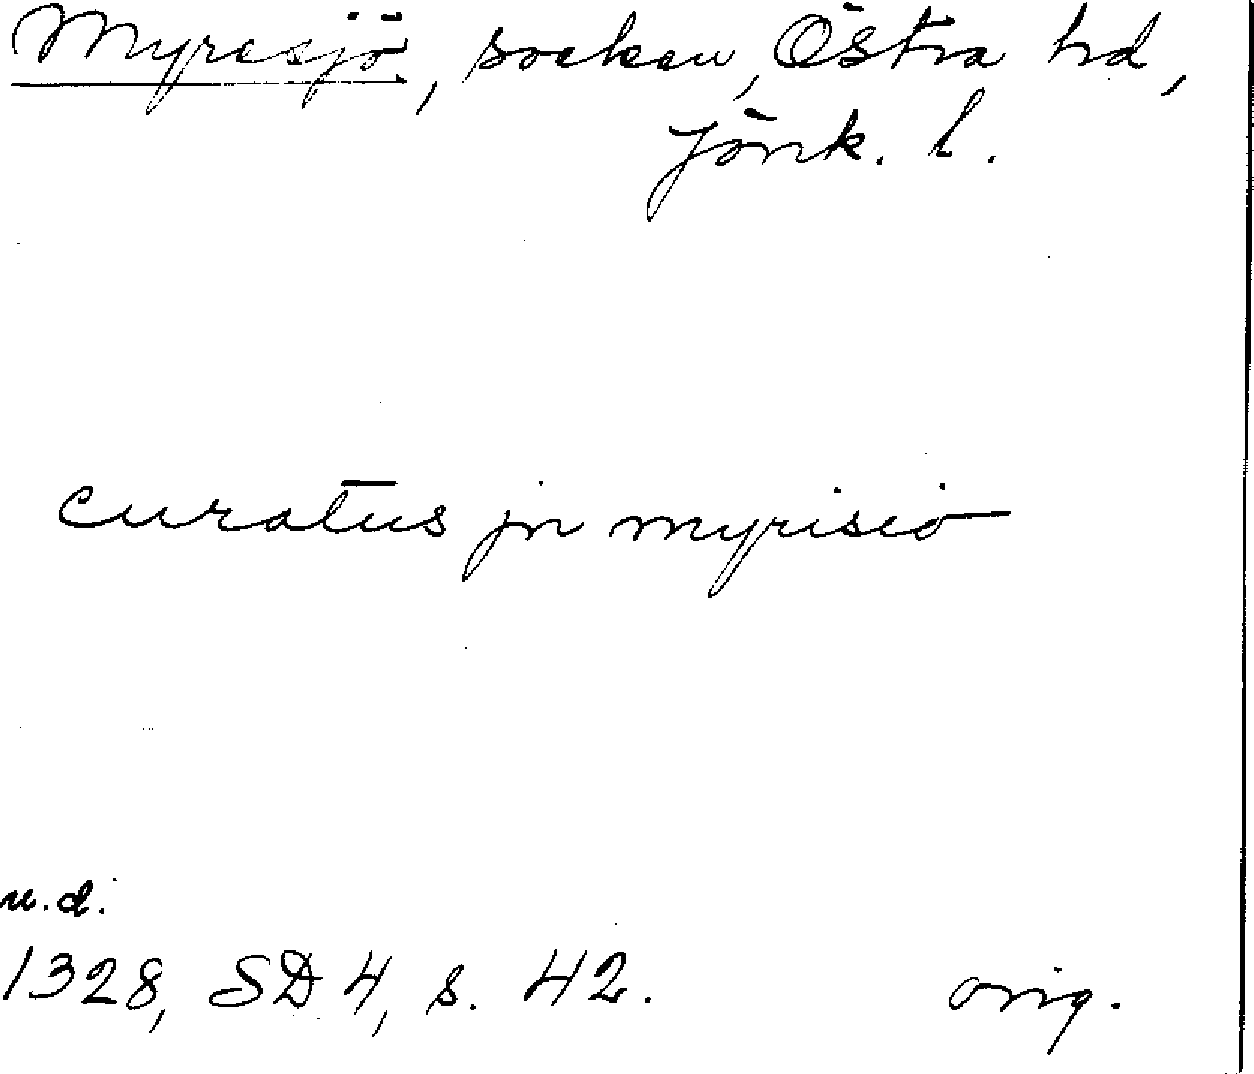 Myresjö, socken, Östra hd,
Jönk. l.
curatus jn myrisio
u.d.
1328, SD 4, s. 42. orig.